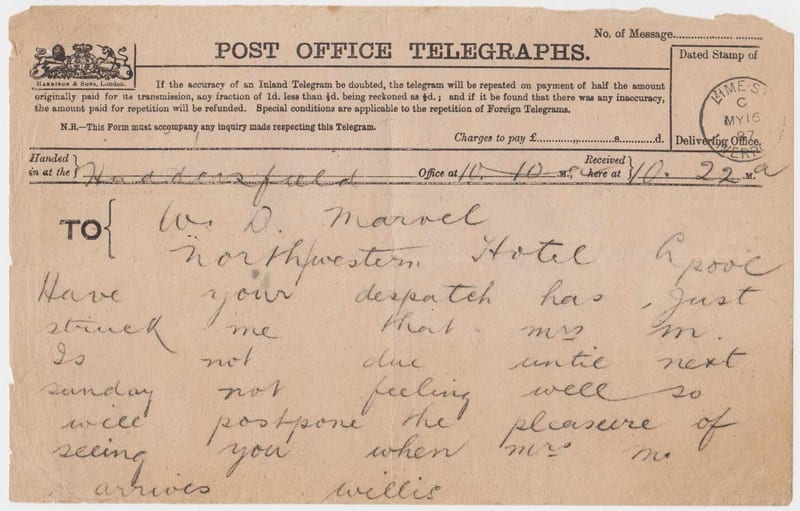 No. of Message
POST OFFICE TELEGRAPHS.
Dated Stamp of
HARRISON & SONS, London.
If the accuracy of an Inland Telegram be doubted, the telegram will be repeated on payment of half the amount
originally paid for its transmission, any fraction of 1d. less than ½d. being reckoned as ½d.; and if it be found that there was any inaccuracy,
the amount paid for repetition will be refunded. Special conditions are applicable to the repetition of Foreign Telegrams.
N.B.—This Form must accompany any inquiry made respecting this Telegram.
Charges to pay £ s. d.
LIME-ST
C
MY 16
87
LIVERPO
Delivering Office.
Handed in at the } Huddersfield Office at 10.10 a M., Received here at } 10.22 a M.
TO { W. D. Marvel
Northwestern Hotel Lpool
Have your despatch has Just
struck me that mrs m.
Is not due until next
sunday not feeling well so
will postpone the pleasure of
seeing you when mrs m
arrives willis